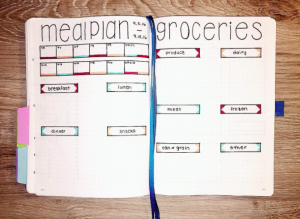 mealplan
groceries
breakfast
lunch
dinner
snacks
produce
dairy
meat
frozen
can + grain
other